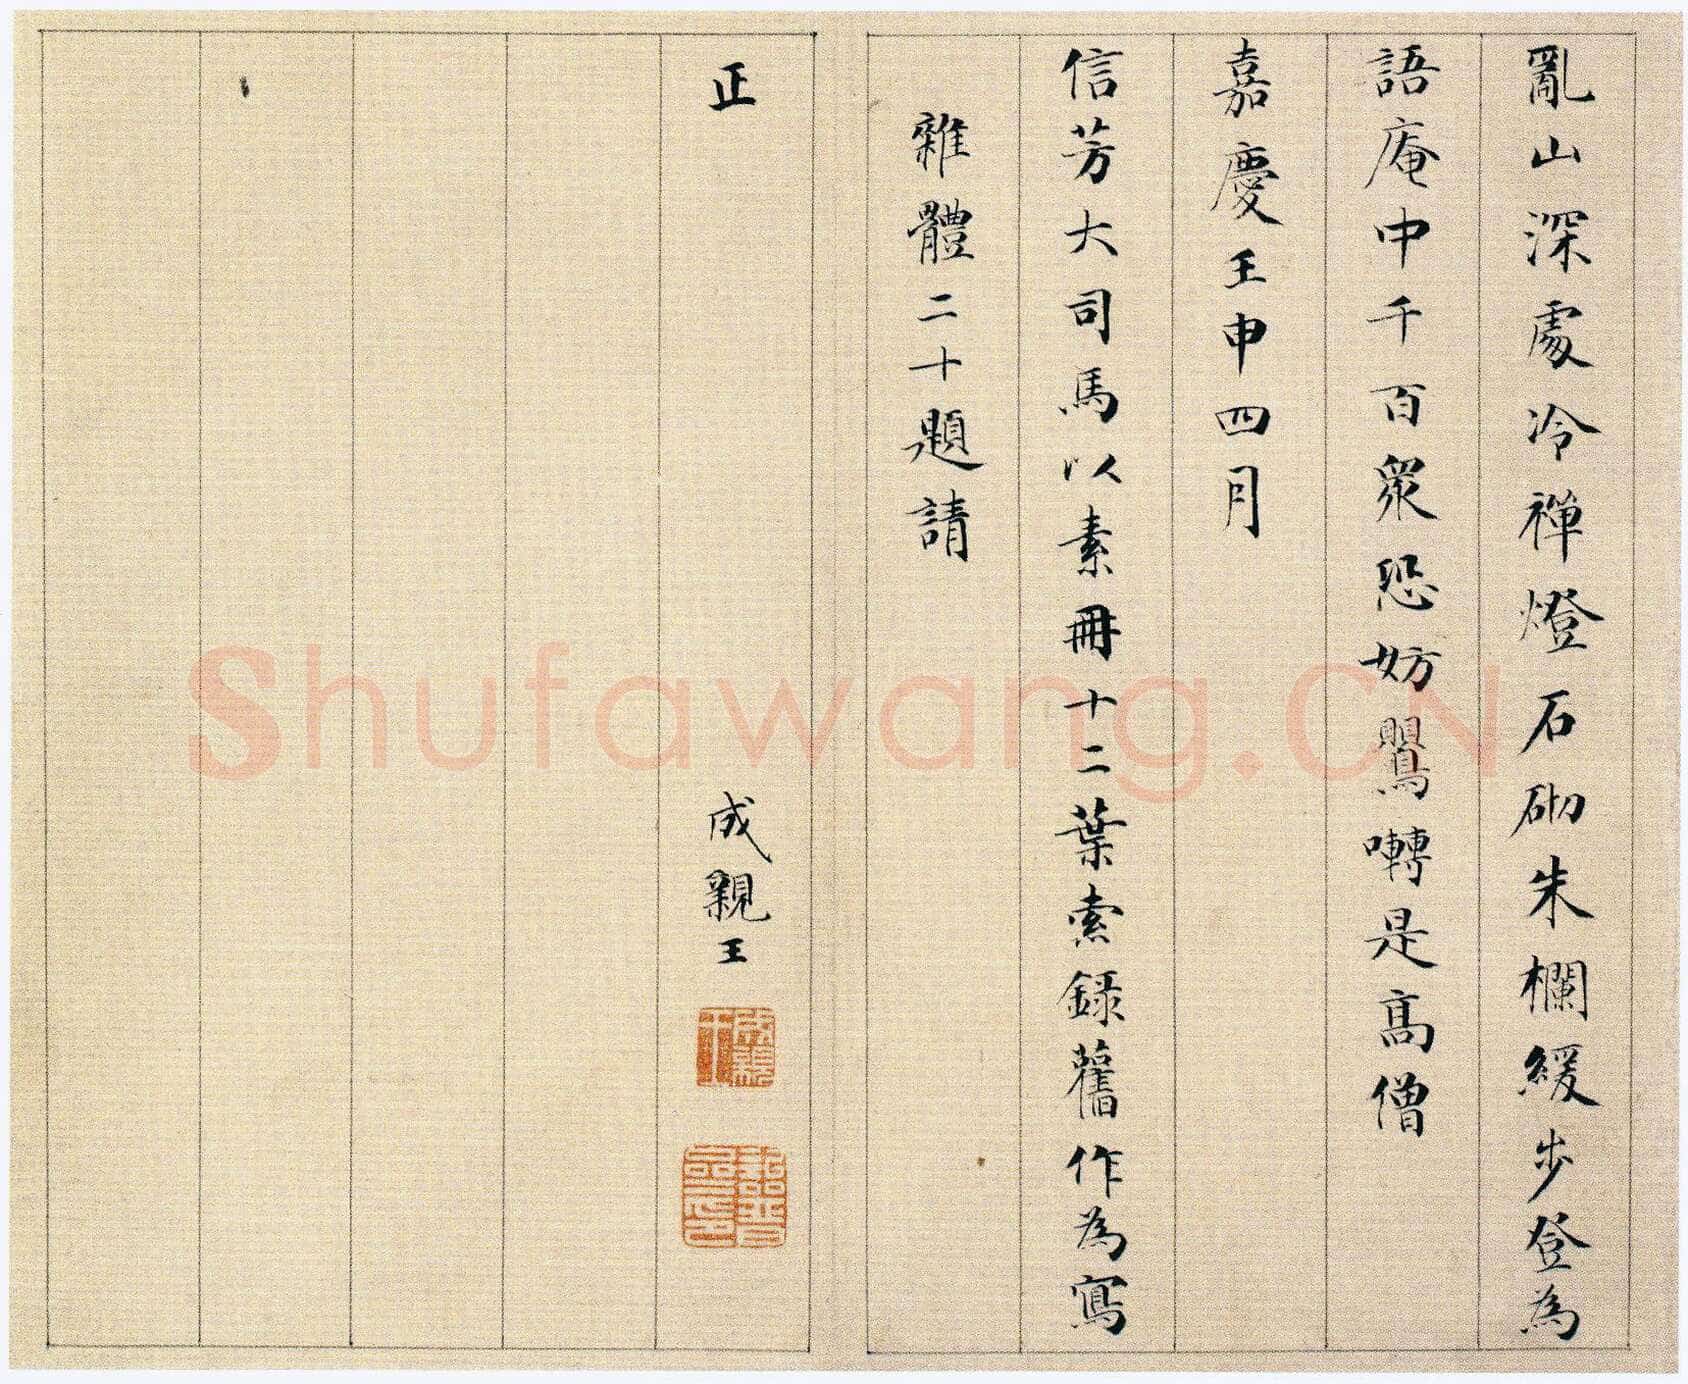 亂山深處冷禅燈石砌朱欄緩步登為
語庵中千百衆恐妨鸎囀是高僧
嘉慶壬申四月
信芳大司馬以素冊十二葉索録舊作為寫
雜體二十題請
正
成親王
Shufawang.CN